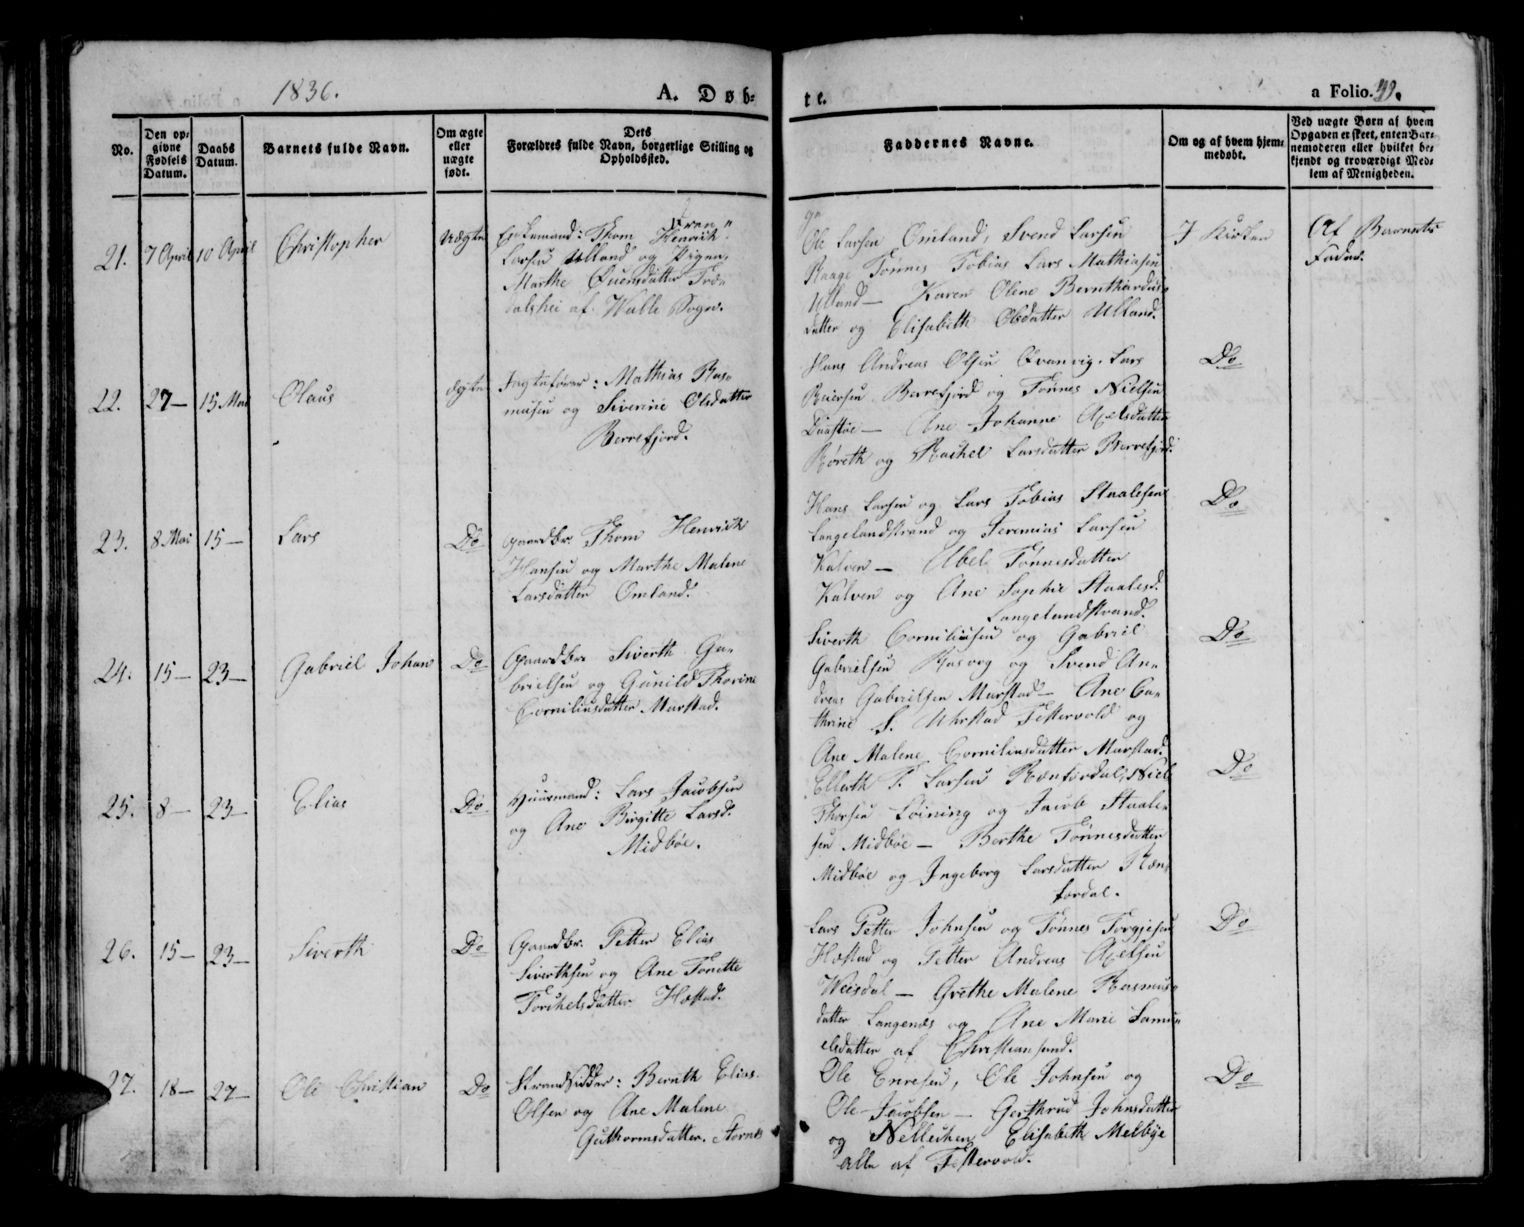 1836.
A. Døb-
te.
a Folio. 49.
No.
Den op-
givne
Fødsels
Datum.
Daabs
Datum.
Barnets fulde Navn.
Om ægte
eller
uægte
født.
Dets
Forældres fulde Navn, borgerlige Stilling og
Opholdssted.
Faddernes Navne.
Om og af hvem hjem-
medøbt.
Ved uægte Børn af hvem
Opgaven er skeet, enten Bar-
nemoderen eller hvilket be-
kjendt og troværdigt Med-
lem af Menigheden.
21. 7 April 10 April Christopher Uægte
Thom Henrich
Larsen Ulland og Pigen,
Marthe
af Walle Sogn.
Ole Larsen Omland, Svend Larsen
Raage Tønnes Tobias Lars Mathiasen
Ulland — Karen Olene Bernthardus-
datter og Elisabeth Olsdatter Ulland.
I Kirken
Af Barnets
Fader.
22. 27 — 15 Mai Olaus ægte
Jagtefører: Mathias Ras-
musen og Siverine Olsdatter
Berrefjord.
Hans Andreas Olsen Qvanvig. Lars
Reiersen Berrefjord og Tønnes Nielsen
— Ane Johanne Axelsdatter
Røreth og Rachel Larsdatter Berrefjord.
Do
23. 8 Mai 15 — Lars Do
Gaardbr. Thom Henrich
Hansen og Marthe Malene
Larsdatter Omland.
Hans Larsen og Lars Tobias Staalesen
Langelandstrand og Jeremias Larsen
Kalven — Abel Tønnesdatter
Kalven og Ane Sophie Staalesd.
Langelandstrand.
Do
24. 15 — 23 — Gabriel Johan Do
Gaardbr. Siverth Ga-
brielsen og Gunild Thorine
Corniliusdatter Marstad.
Siverth Corniliusen og Gabriel
Gabrielsen Rosvog og Svend An-
dreas Gabrielsen Marstad — Ane Ca-
thrine S. Uhrstad Fettervold og
Ane Malene Corniliusdatter Marstad.
Do
25. 8 — 23 — Elias Do
Huusmand: Lars Jacobsen
og Ane Birgitte Larsd.
Midbøe.
Ellerth T. Larsen Rænfordal, Niels
Thorsen Loining og Jacob Staale-
sen Midbøe — Berthe Tønnesdatter
Midbøe og Ingeborg Larsdatter Ræn-
fordal.
Do
26. 15 — 23 — Siverth Do
Gaardbr. Petter Elias
Siverthsen og Ane Tonette
Torchelsdatter Hæstad.
Lars Petter Johnsen og Tønnes Torgjesen
Hæstad og Petter Andreas Axelsen
Weisdal — Grethe Malene Rasmus-
datter Langenæs og Ane Marie Samu-
elsdatter af Christiansund.
Do
27. 18 — 27 — Ole Christian Do
Strandsidder: Bernth Elias
Olsen og Ane Malene
Guthormsdatter.
Ole Enresen, Ole Johnsen og
Ole Jacobsen — Gerthrud Johnsdatter
og Nellichen Elisabeth Melbye
alle af Fettervold.
Do